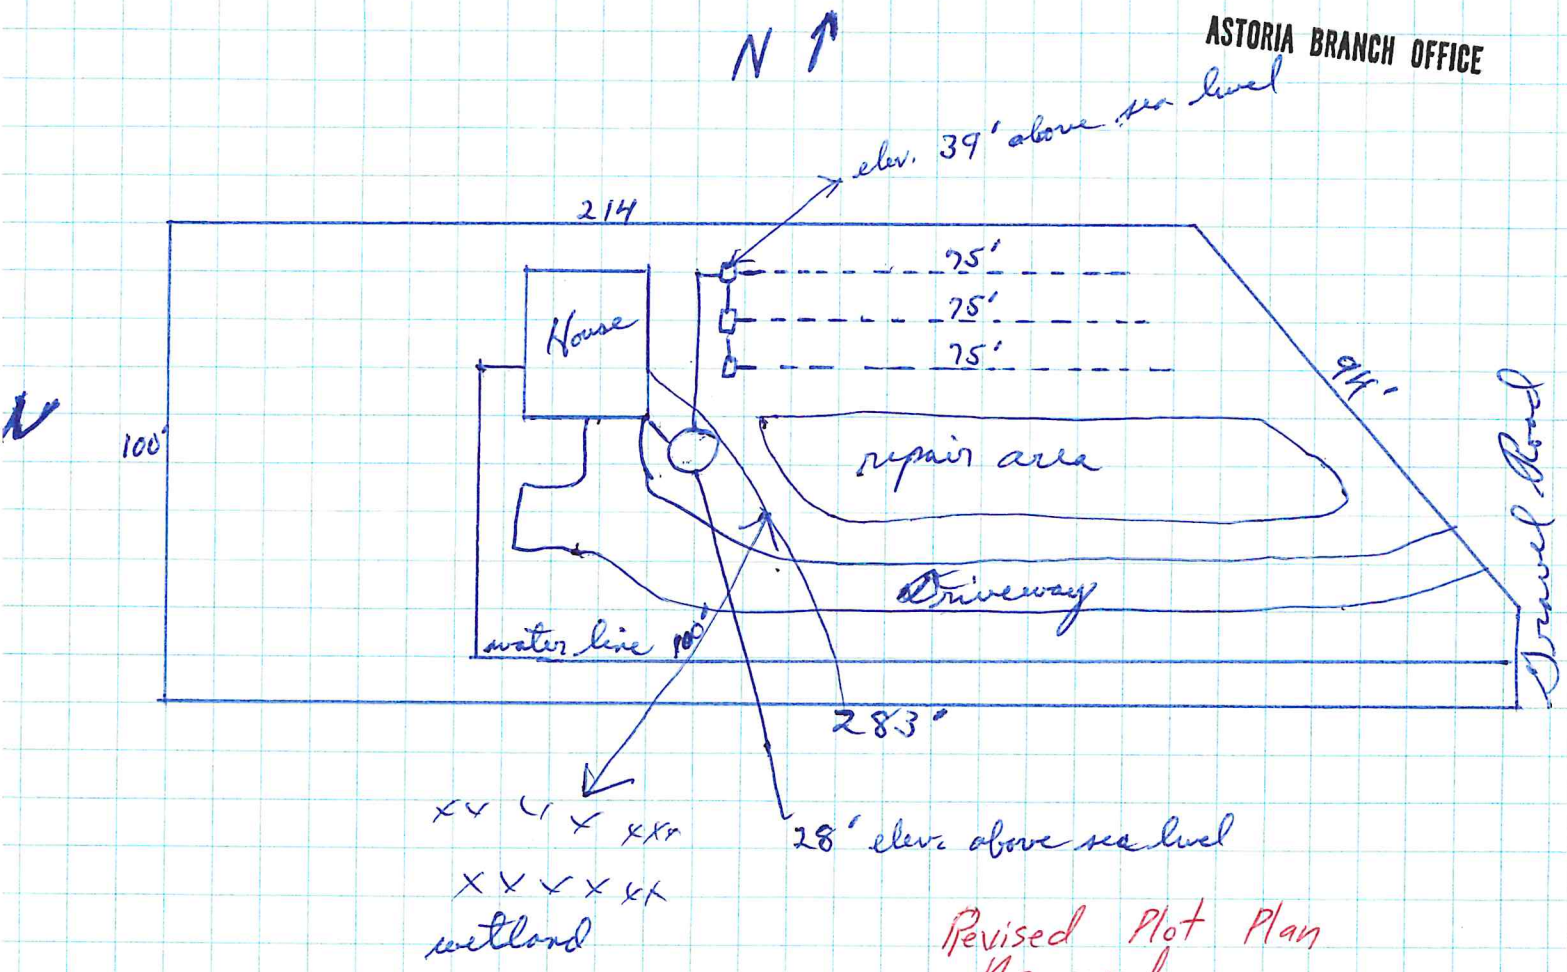 ASTORIA BRANCH OFFICE
N
elev. 39' above sea level
214
75'
House
75'
75'
94'
N
100'
repair area
Gravel Road
Driveway
water line 100'
283'
xx x x xxx
28' elev. above sea level
x x x x xx
wetland
Revised Plot Plan